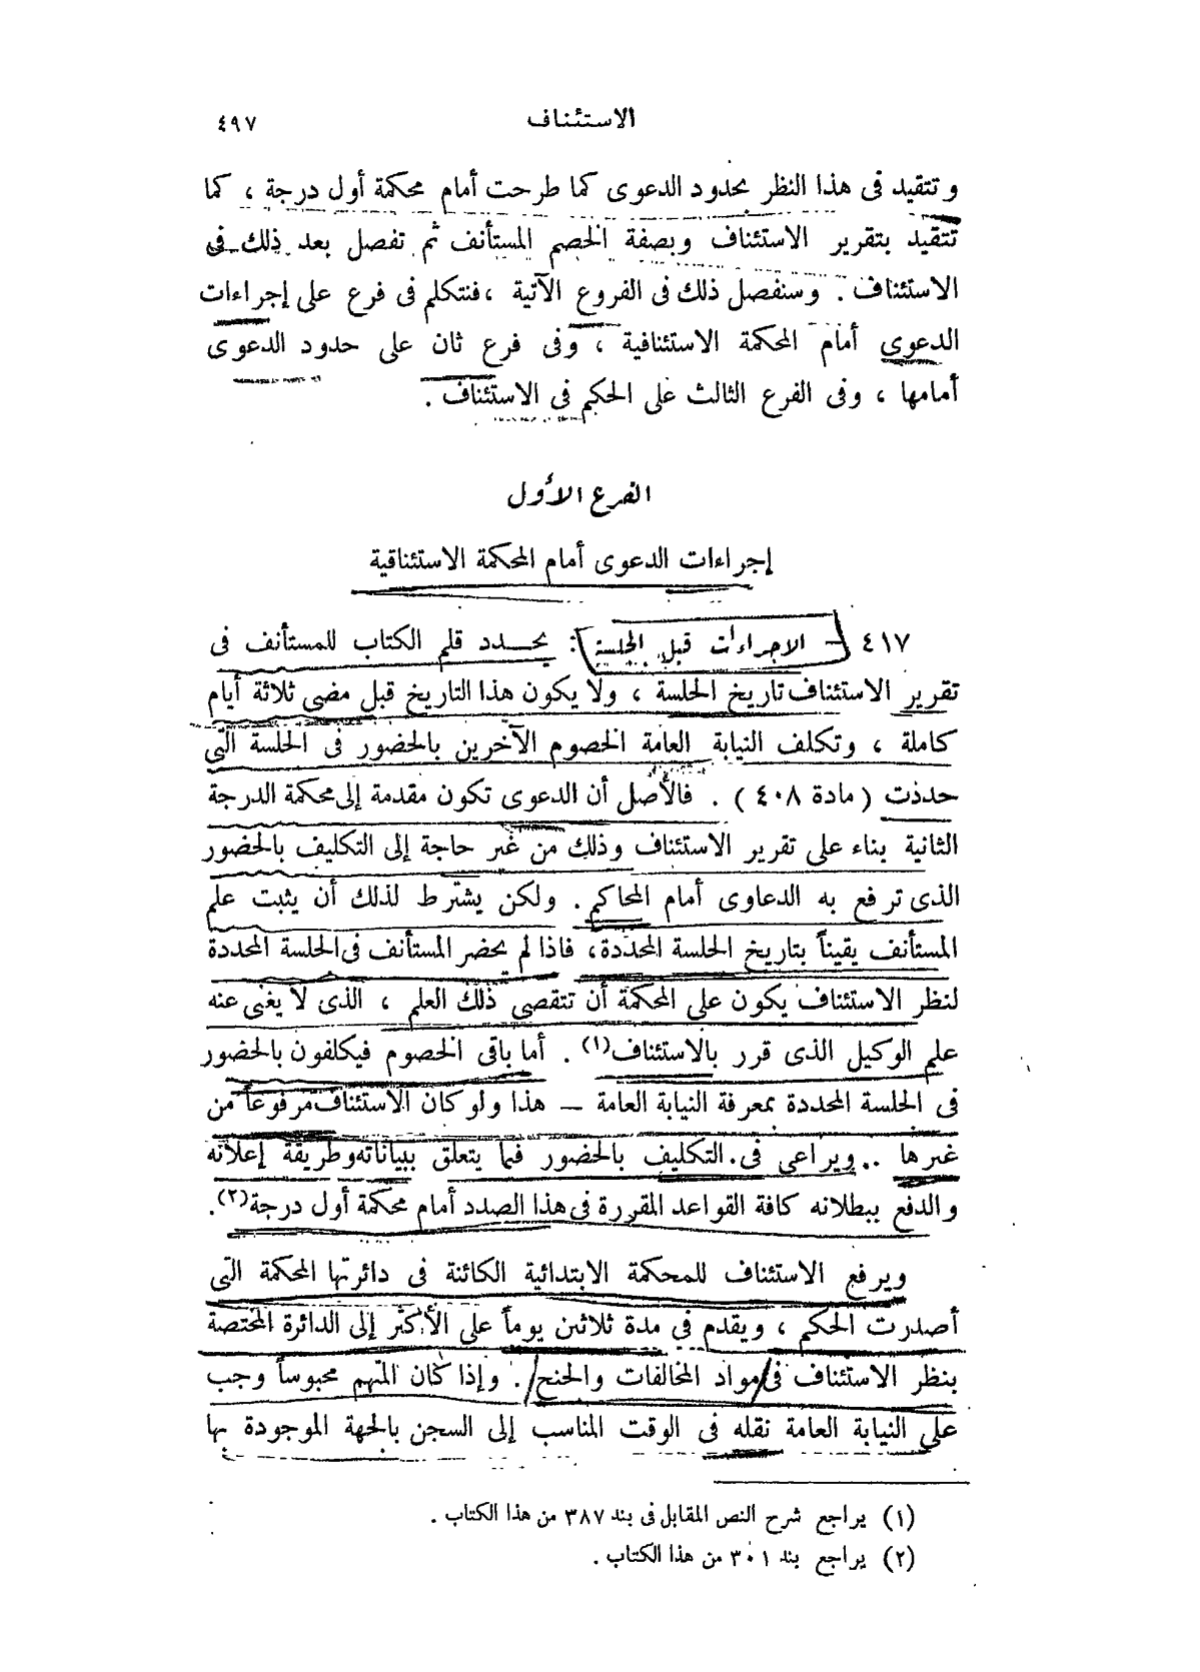 الاستئناف ٤٩٧
وتتقيد فى هذا النظر بحدود الدعوى كما طرحت أمام محكمة أول درجة ، كما
تتقيد بتقرير الاستئناف وبصفة الخصم المستأنف ثم تفصل بعد ذلك فى
الاستئناف . وسنفصل ذلك فى الفروع الآتية ، فنتكلم فى فرع على إجراءات
الدعوى أمام المحكمة الاستئنافية ، وفى فرع ثان على حدود الدعوى
أمامها ، وفى الفرع الثالث على الحكم فى الاستئناف .
الفرع الأول
إجراءات الدعوى أمام المحكمة الاستئنافية
٤١٧ – الاجراءات قبل الجلسة : يحدد قلم الكتاب للمستأنف فى
تقرير الاستئناف تاريخ الجلسة ، ولا يكون هذا التاريخ قبل مضى ثلاثة أيام
كاملة ، وتكلف النيابة العامة الخصوم الآخرين بالحضور فى الجلسة التى
حددت ( مادة ٤٠٨ ) . فالأصل أن الدعوى تكون مقدمة إلى محكمة الدرجة
الثانية بناء على تقرير الاستئناف وذلك من غير حاجة إلى التكليف بالحضور
الذى ترفع به الدعاوى أمام المحاكم . ولكن يشترط لذلك أن يثبت علم
المستأنف يقيناً بتاريخ الجلسة المحددة ، فاذا لم يحضر المستأنف فى الجلسة المحددة
لنظر الاستئناف يكون على المحكمة أن تتقصى ذلك العلم ، الذى لا يغنى عنه
علم الوكيل الذى قرر بالاستئناف(١) . أما باقى الخصوم فيكلفون بالحضور
فى الجلسة المحددة بمعرفة النيابة العامة – هذا ولو كان الاستئناف مرفوعاً من
غيرها .. ويراعى فى التكليف بالحضور فيما يتعلق ببياناته وطريقة إعلانه
والدفع ببطلانه كافة القواعد المقررة فى هذا الصدد أمام محكمة أول درجة(٢) .
ويرفع الاستئناف للمحكمة الابتدائية الكائنة فى دائرتها المحكمة التى
أصدرت الحكم ، ويقدم فى مدة ثلاثين يوماً على الأكثر إلى الدائرة المختصة
بنظر الاستئناف فى مواد المخالفات والجنح . وإذا كان المتهم محبوساً وجب
على النيابة العامة نقله فى الوقت المناسب إلى السجن بالجهة الموجودة بها
(١) يراجع شرح النص المقابل فى بند ٣٨٧ من هذا الكتاب .
(٢) يراجع بند ٣٠١ من هذا الكتاب .